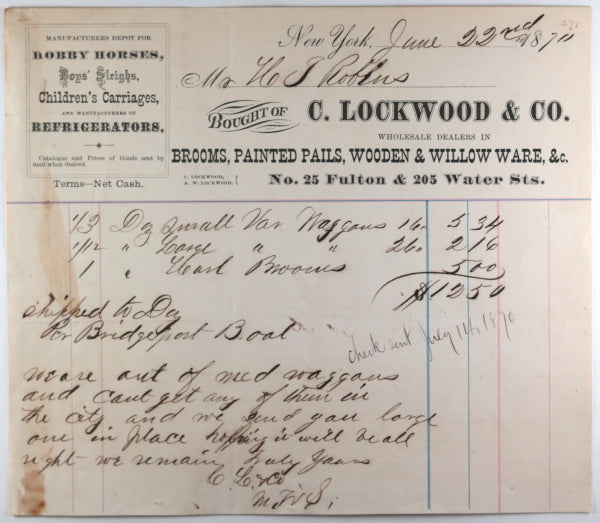 MANUFACTURERS DEPOT FOR
HOBBY HORSES,
Boys' Sleighs,
Children's Carriages,
AND MANUFACTURERS OF
REFRIGERATORS.
Catalogue and Prices of Goods sent by
mail when desired.
Terms—Net Cash.
New York, June 22nd 1870
Mr H T Robbins
BOUGHT OF C. LOCKWOOD & CO.
WHOLESALE DEALERS IN
BROOMS, PAINTED PAILS, WOODEN & WILLOW WARE, &c.
C. LOCKWOOD,
A. W. LOCKWOOD.
No. 25 Fulton & 205 Water Sts.
1/3 Dz Small Var Waggons 16. 5 34
1/12 " Large " " 26. 2 16
1 " Hearl Brooms 5 00
$12 50
shipped to Day
Per Bridgeport Boat
check sent July 14. 1870
we are out of med waggons
and cant get any of them in
the city and we send you large
one in place hopping it will be all
right we remain truly yours
C. L. & Co